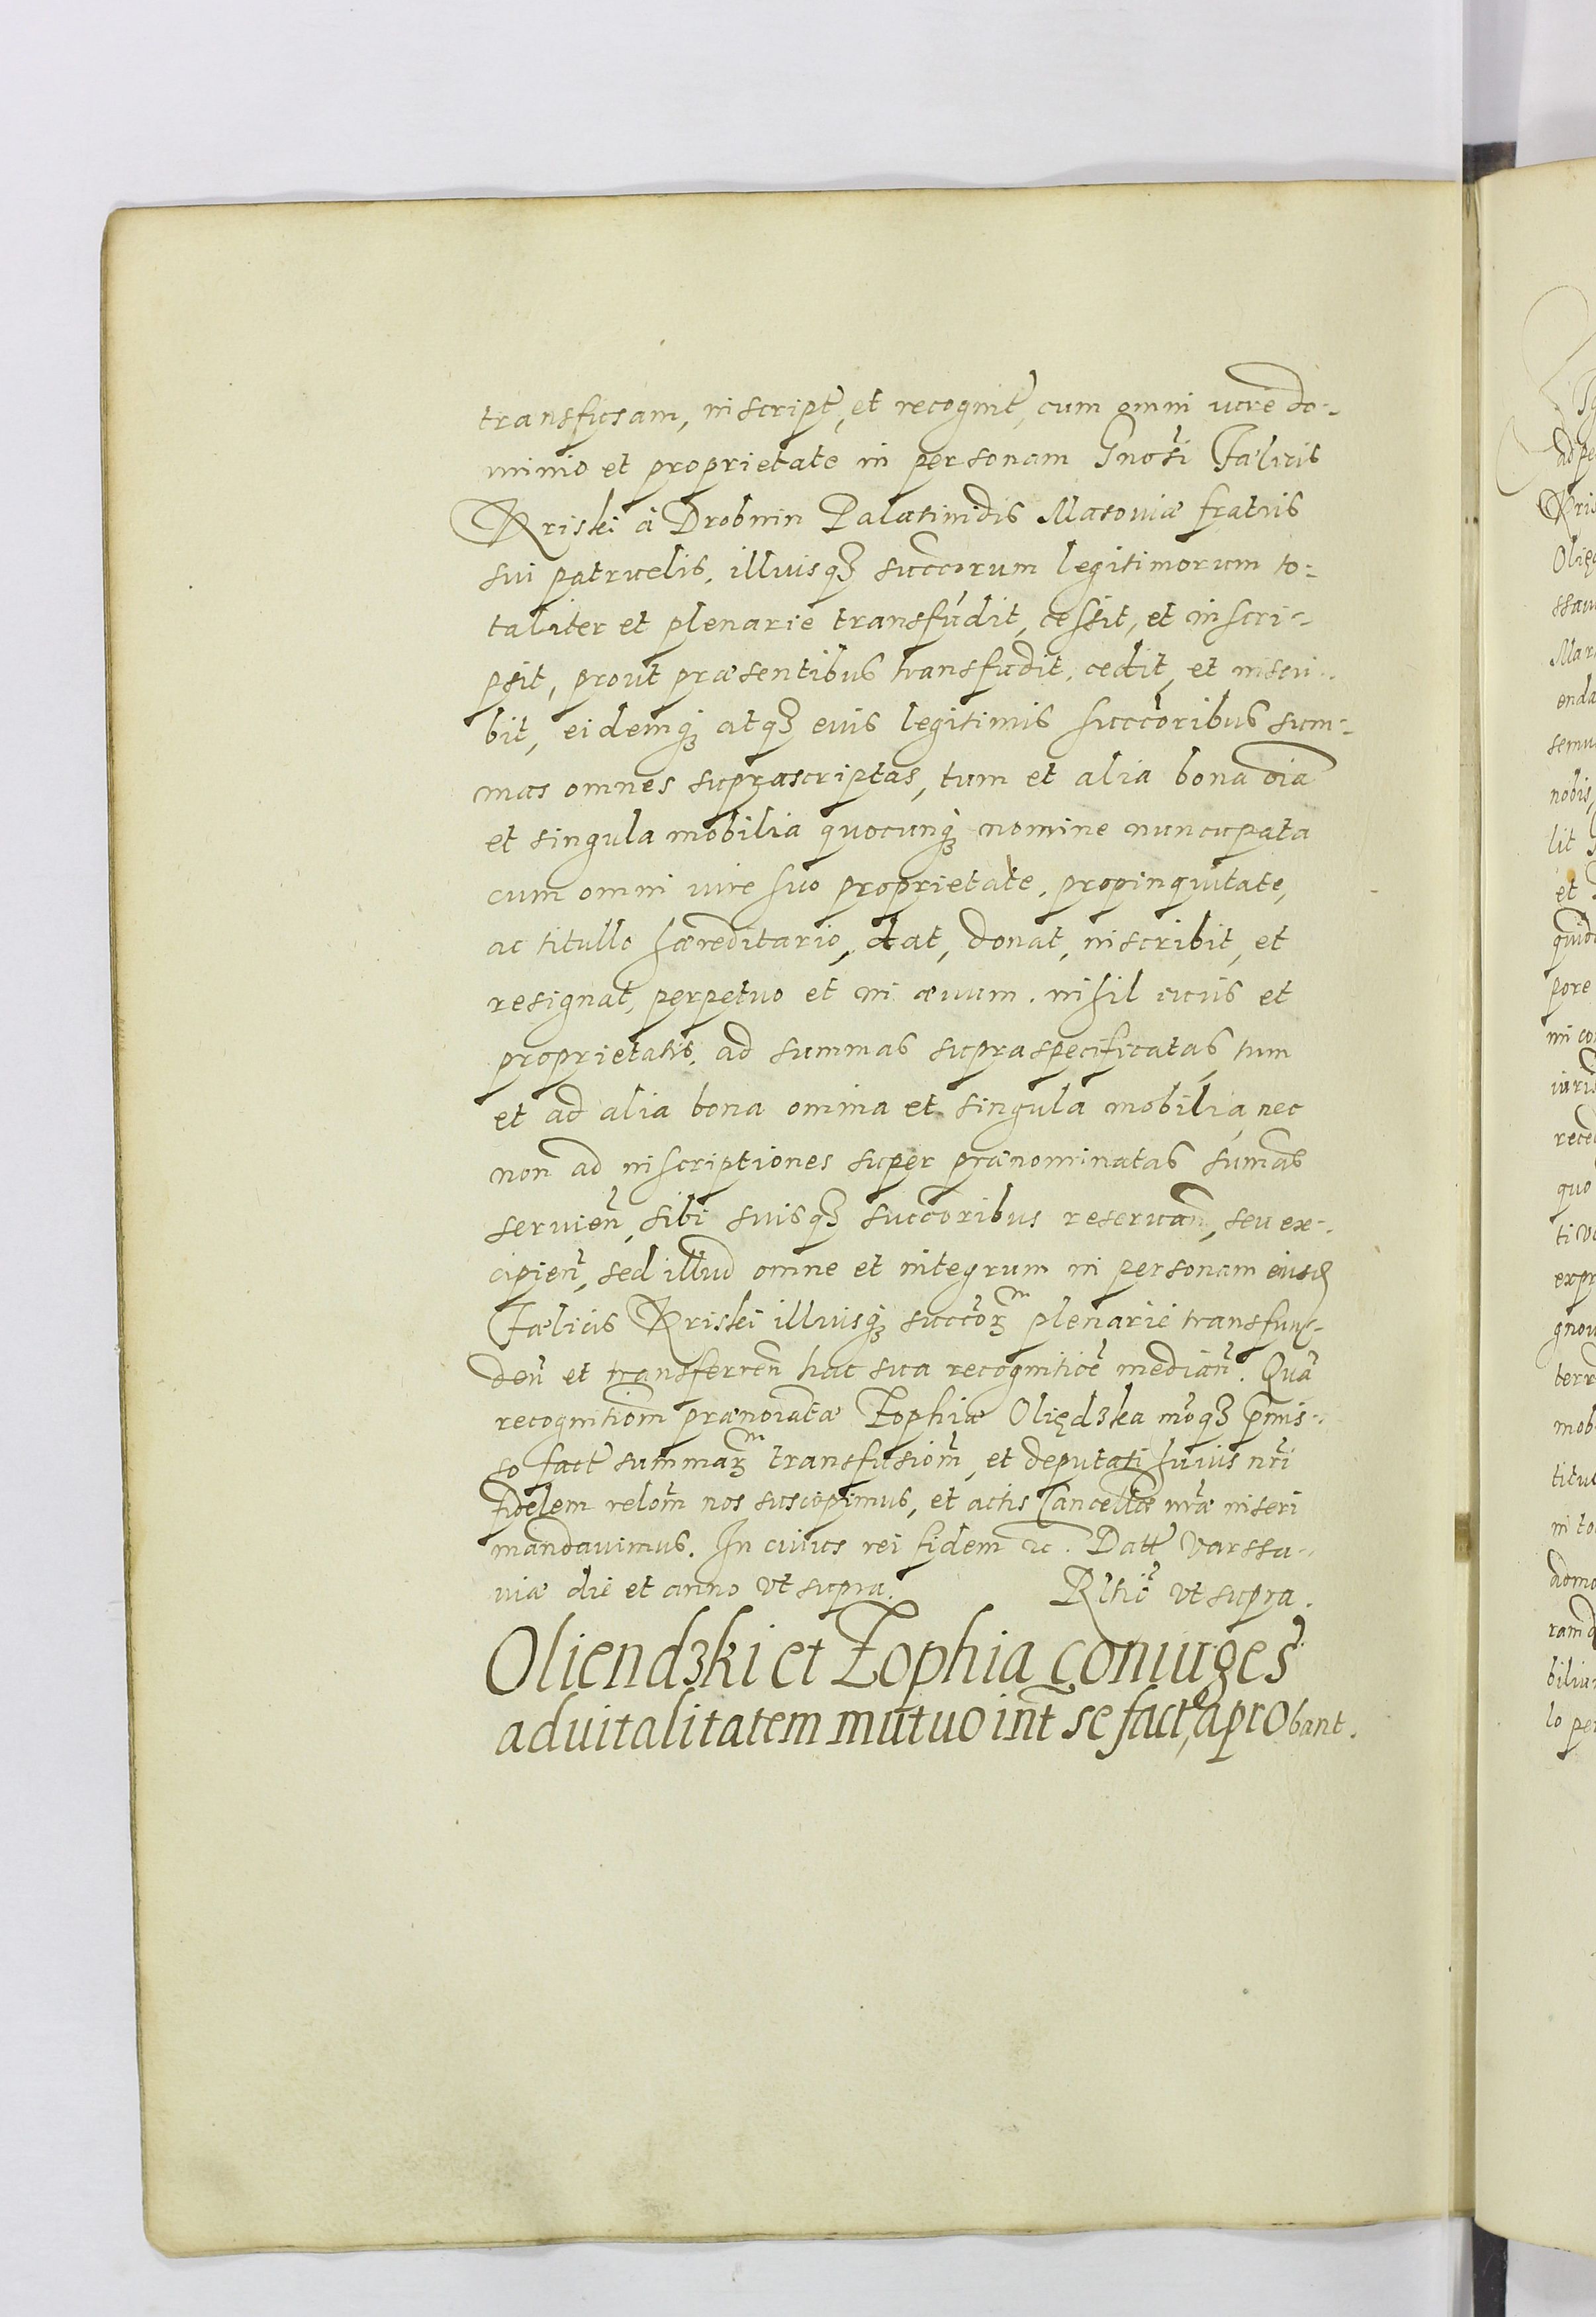 transfusam, inscript, et recognit, cum omni iure do-
minio et proprietate in personam Gnosi Fælicis
Kriski à Drobnin Palatinidis Masoviæ fratris
sui patruelis, illiusq₃ succorum legitimorum to-
taliter et plenarie transfudit, cessit, et inscri-
psit, prout præsentibus transfudit, cedit, et inscri-
bit, eidemq₃ atq₃ eius legitimis succcoribus sum-
mas omnes suprascriptas, tum et alia bona oia
et singula mobilia quocunq₃ nomine nuncupata
cum omni iure suo proprietate, propinquitate,
ac titullo hæreditario, dat, donat, inscribit, et
resignat, perpetuo et in ævum. nihil iuris et
proprietatis, ad summas supraspecificatas, tum
et ad alia bona omnia et singula mobilia, nec
non ad inscriptiones super prænominatas sumas
servien, sibi suisq₃ succoribus reservan, seu ex-
cipien, sed illud omne et integrum in personam eiusd
Fælicis Kriski illiusq₃ succor plenarie transfun-
den et transferren hac sua recognitioe median. Quã
recognitiom prænoiatæ Zophiæ Olięd3ka moq₃ pmis-
so fact summar transfusiom, et deputati huius nri
fidelem relom nos suscepimus, et actis Cancellæ nræ inseri
mandavimus. In cuius rei fidem etc. Datt Varssa-
viæ die et anno vt supra. Rltio vt supra.
Oliend3ki et Zophia coniuges
advitalitatem mutuo int se fact, aprobant.